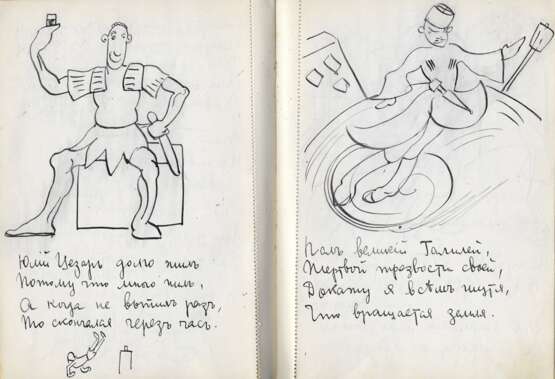 Юлій Цезарь долго жилъ
Потому что много пилъ,
А когда не выпилъ разъ,
То скончался черезъ часъ.
Какъ великій Галилей,
Жертвой трезвости своей,
Докажу я всѣмъ шутя,
Что вращается земля.